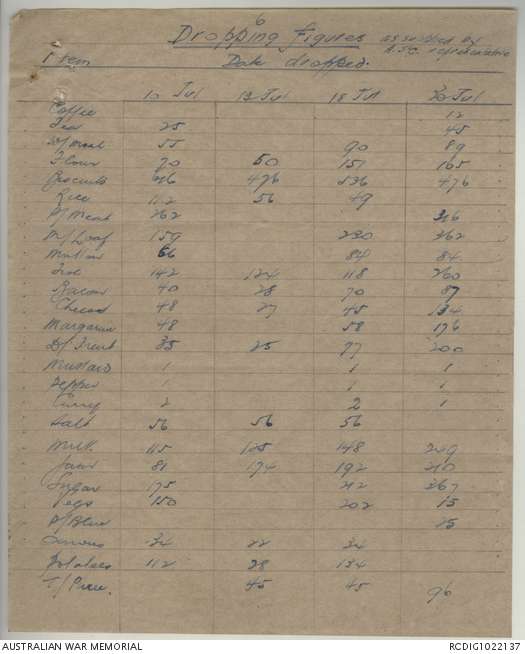 6
Dropping figures as supplied by
A.S.C. representative
Item Date dropped.
10 Jul 12 Jul 18 Jul 20 Jul
Coffee 12
Tea 25 45
D/meal 55 90 89
Flour 70 50 151 165
Biscuits 476 536 476
Rice 112 56 49
P/Meat 262 316
M/Loaf 159 230 362
Mutton 66 84 84
142 124 118 260
Bacon 40 28 70 87
Cheese 48 27 45 134
Margarine 48 58 176
D/Fruit 35 25 77 200
Mustard 1 1 1
Pepper 1 1 1
Curry 2 2 1
Salt 56 56 56
Milk 115 125 148 249
Jam 81 174 192 210
Sugar 175 212 267
Vegs 150 202 15
25
Onions 34 22 34
Potatoes 112 28 134
T/ 45 45 96
AUSTRALIAN WAR MEMORIAL RCDIG1022137